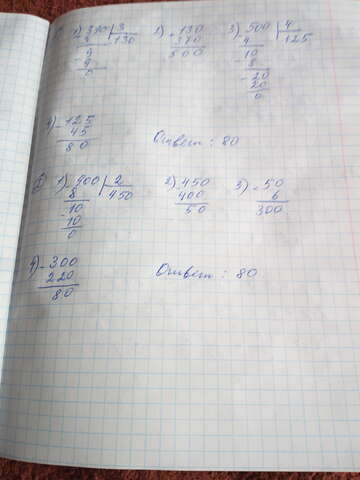 1) 390 | 3 1) + 130 3) 500 | 4
3 130 370 4 125
- 9 500 10
9 - 8
0 - 20
20
0
4) - 125
45 Ответ: 80
80
2) 1) 900 | 2 2) - 450 3) × 50
8 450 400 6
- 10 50 300
10
0
4) - 300
220 Ответ: 80
80